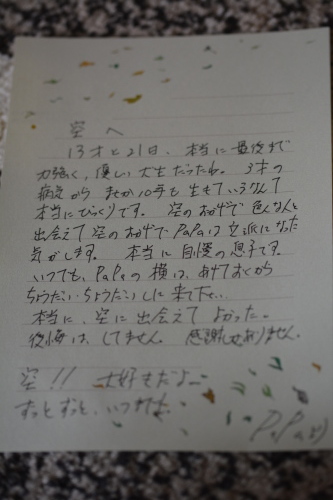 空へ
13才と21日、本当に最後まで
力強く、優しい犬生だったね。3才の
病気からまさか10年も生きているなんて
本当にびっくりです。空のおかげで色んな人と
出会えて空のおかげでPaPaは立派になった
気がします。本当に自慢の息子です。
いつでも、PaPaの横は、あけておくから
ちょうだい・ちょうだいしに来て
本当に、空に出会えてよかった。
後悔は、してません。感謝しかありません。
空!!大好きだよ
ずっとずっと、いつまでも
PaPaより